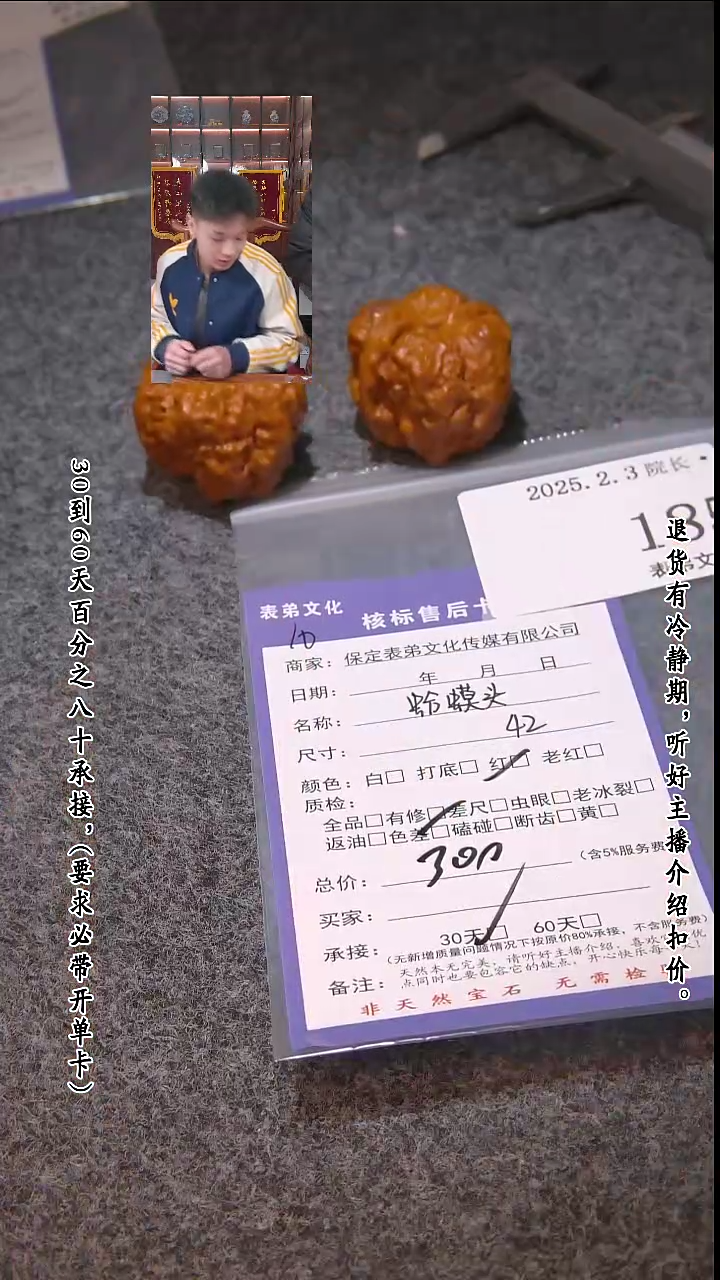 2025.2.3 院长
表弟文
表弟文化
核标售后卡
10
商家：保定表弟文化传媒有限公司
日期： 年 月 日
名称： 蛤蟆头
尺寸： 42
颜色：白□ 打底□ 红□ 老红□
质检：
全品□有修□差尺□虫眼□老冰裂□
返油□色差□磕碰□断齿□黄□
总价： 300 （含5%服务费
买家：
承接： 30天□ 60天□
（无新增质量问题情况下按原价80%承接、不含服务费）
备注：天然本无完美，请听好主播介绍，喜欢
点同时也要包容它的缺点，开心快乐每一天！
非天然宝石 无需检
30到60天百分之八十承接，（要求必带开单卡）
退货有冷静期，听好主播介绍扣价。